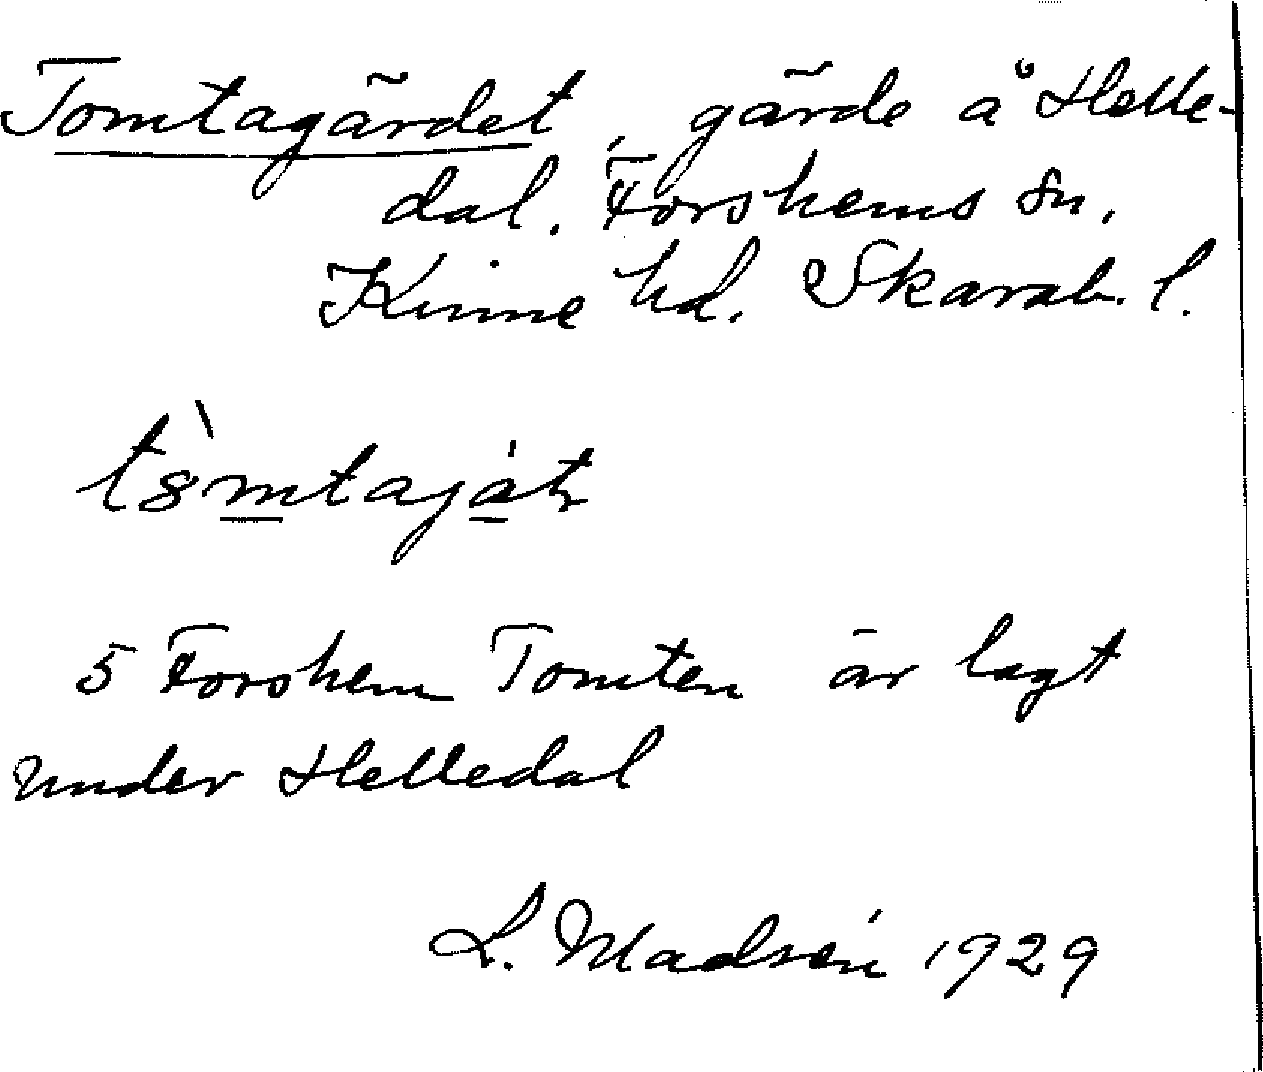 Tomtagärdet, gärde å Helle-
dal. Forshems sn.
Kinne hd. Skarab. l.
5 Forshem Tomten är lagt
under Helledal
L. Madsén 1929